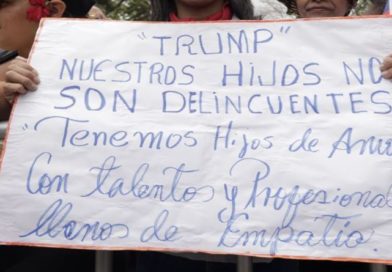 "TRUMP"
NUESTROS HIJOS NO
SON DELINCUENTES
"Tenemos Hijos de
Con talentos y Profesional
llenos de Empatia.